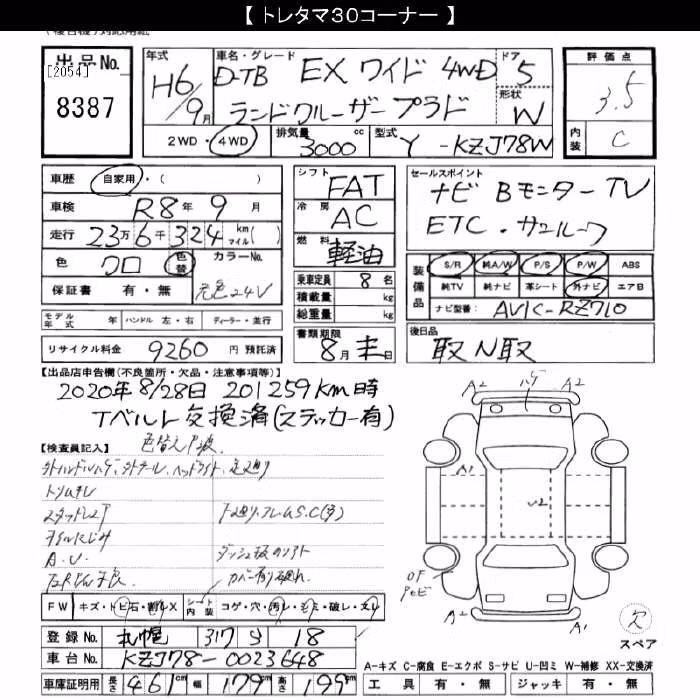 【トレタマ30コーナー】
出品No.
[2054]
8387
年式
H6/9月
車名・グレード
D-TB EX ワイド 4WD
ランドクルーザープラド
ドア
5
形状
W
評価点
3.5
内装
C
2WD・4WD
排気量
3000 cc
型式
Y-KZJ78W
車歴
自家用・( )
車検
R8年 9月
走行
23万6千324 km マイル( )
色
クロ
色替
カラーNo.
保証書 有・無
元色24V
シフト
FAT
冷房
AC
燃料
軽油
乗車定員 8名
積載量 kg
総重量 kg
セールスポイント
ナビ Bモニター TV
ETC・サンルーフ
装備品
S/R 純A/W P/S P/W ABS
純TV 純ナビ 革シート 外ナビ エアB
ナビ型番 AVIC-RZ710
モデル年式 年 ハンドル 左・右 ディーラー・並行
リサイクル料金 9260 円 預託済
書類期限
8月末日
後日品
取N取
【出品店申告欄(不良箇所・欠品・注意事項等)】
2020年8/28日 201259km時
Tベルト交換済(ステッカー有)
【検査員記入】
トリムキレ
スタッドレス
A.U.
FW キズ・トビ石・割レX
シート内装 コゲ・穴・汚レ・シミ・破レ・スレ
登録No. 札幌 317 す 18
車台No. KZJ78-0023648
車庫証明用 長さ 461cm 幅 179cm 高さ 199cm
A2
A2
A1
U2
A2
A1
欠
スペア
A-キズ C-腐食 E-エクボ S-サビ U-凹ミ W-補修 XX-交換済
工具 有・無 ジャッキ 有・無